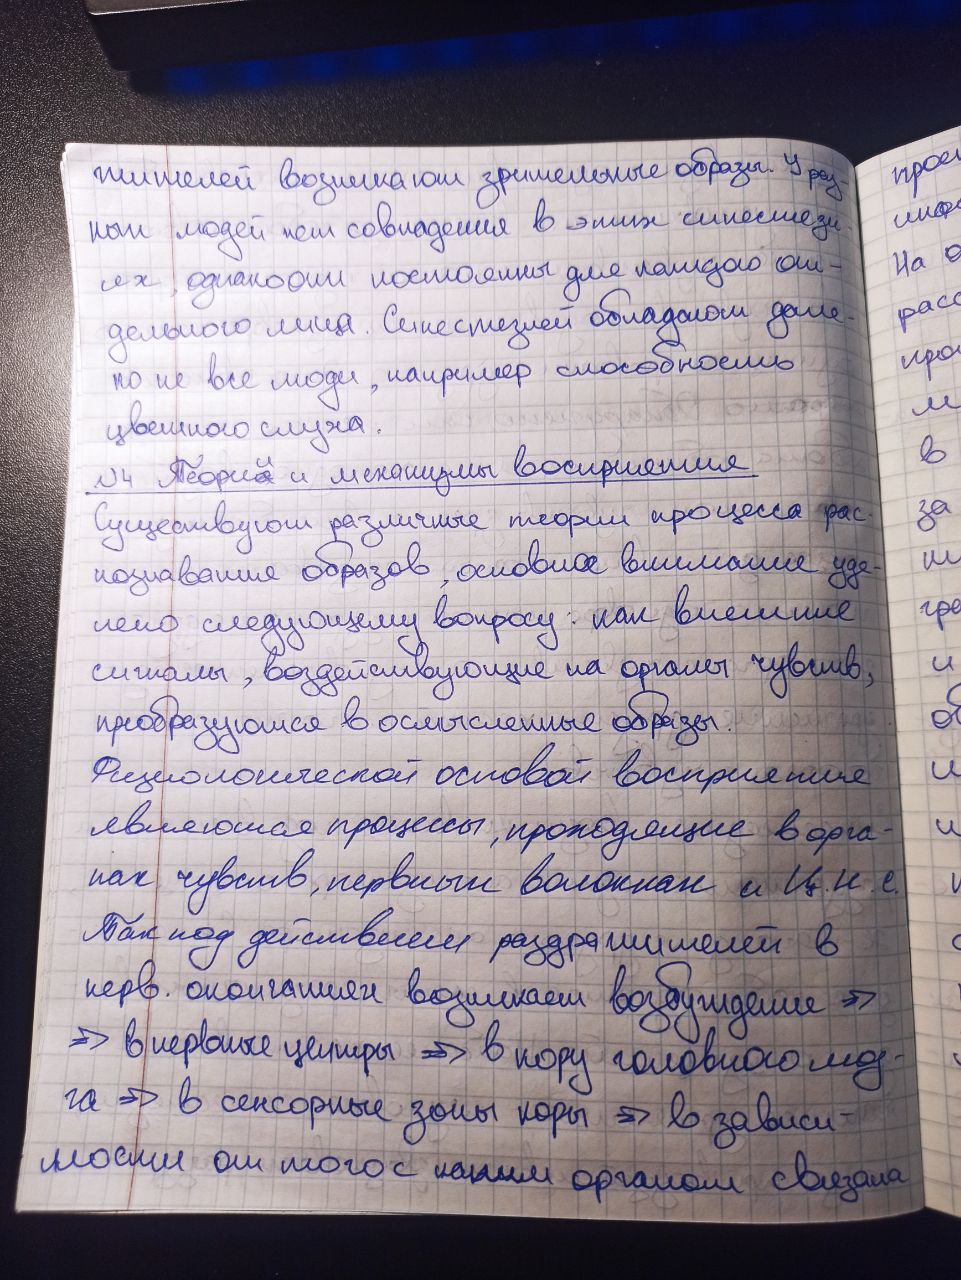 жителей возникают зрительные образы. У раз-
ных людей нет совпадения в этих синестези-
ях, однако они постоянны для каждого от-
дельного лица. Синестезией обладают дале-
ко не все люди, например способность
цветного слуха.
№4 Теории и механизмы восприятия
Существуют различные теории процесса рас-
познавания образов, основное внимание уде-
лено следующему вопросу: как внешние
сигналы, воздействующие на органы чувств,
преобразуются в осмысленные образы.
Физиологической основой восприятия
являются процессы, проходящие в орга-
нах чувств, нервных волокнах и Ц.Н.С.
Так под действием раздражителей в
нерв. окончаниях возникает возбуждение =>
=> в нервные центры => в кору головного моз-
га => в сенсорные зоны коры => в зависи-
мости от того с каким органом связана
прое
На о
расс
про
м
в
за
гре
и
об
и
и